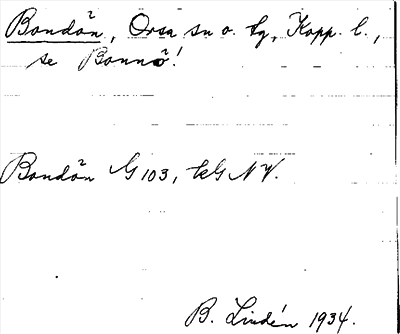 Bondön, Orsa sn o. tg, Kopp. l.,
se Bonnö!
Bondön G 103, kG NV.
B. Lindén 1934.